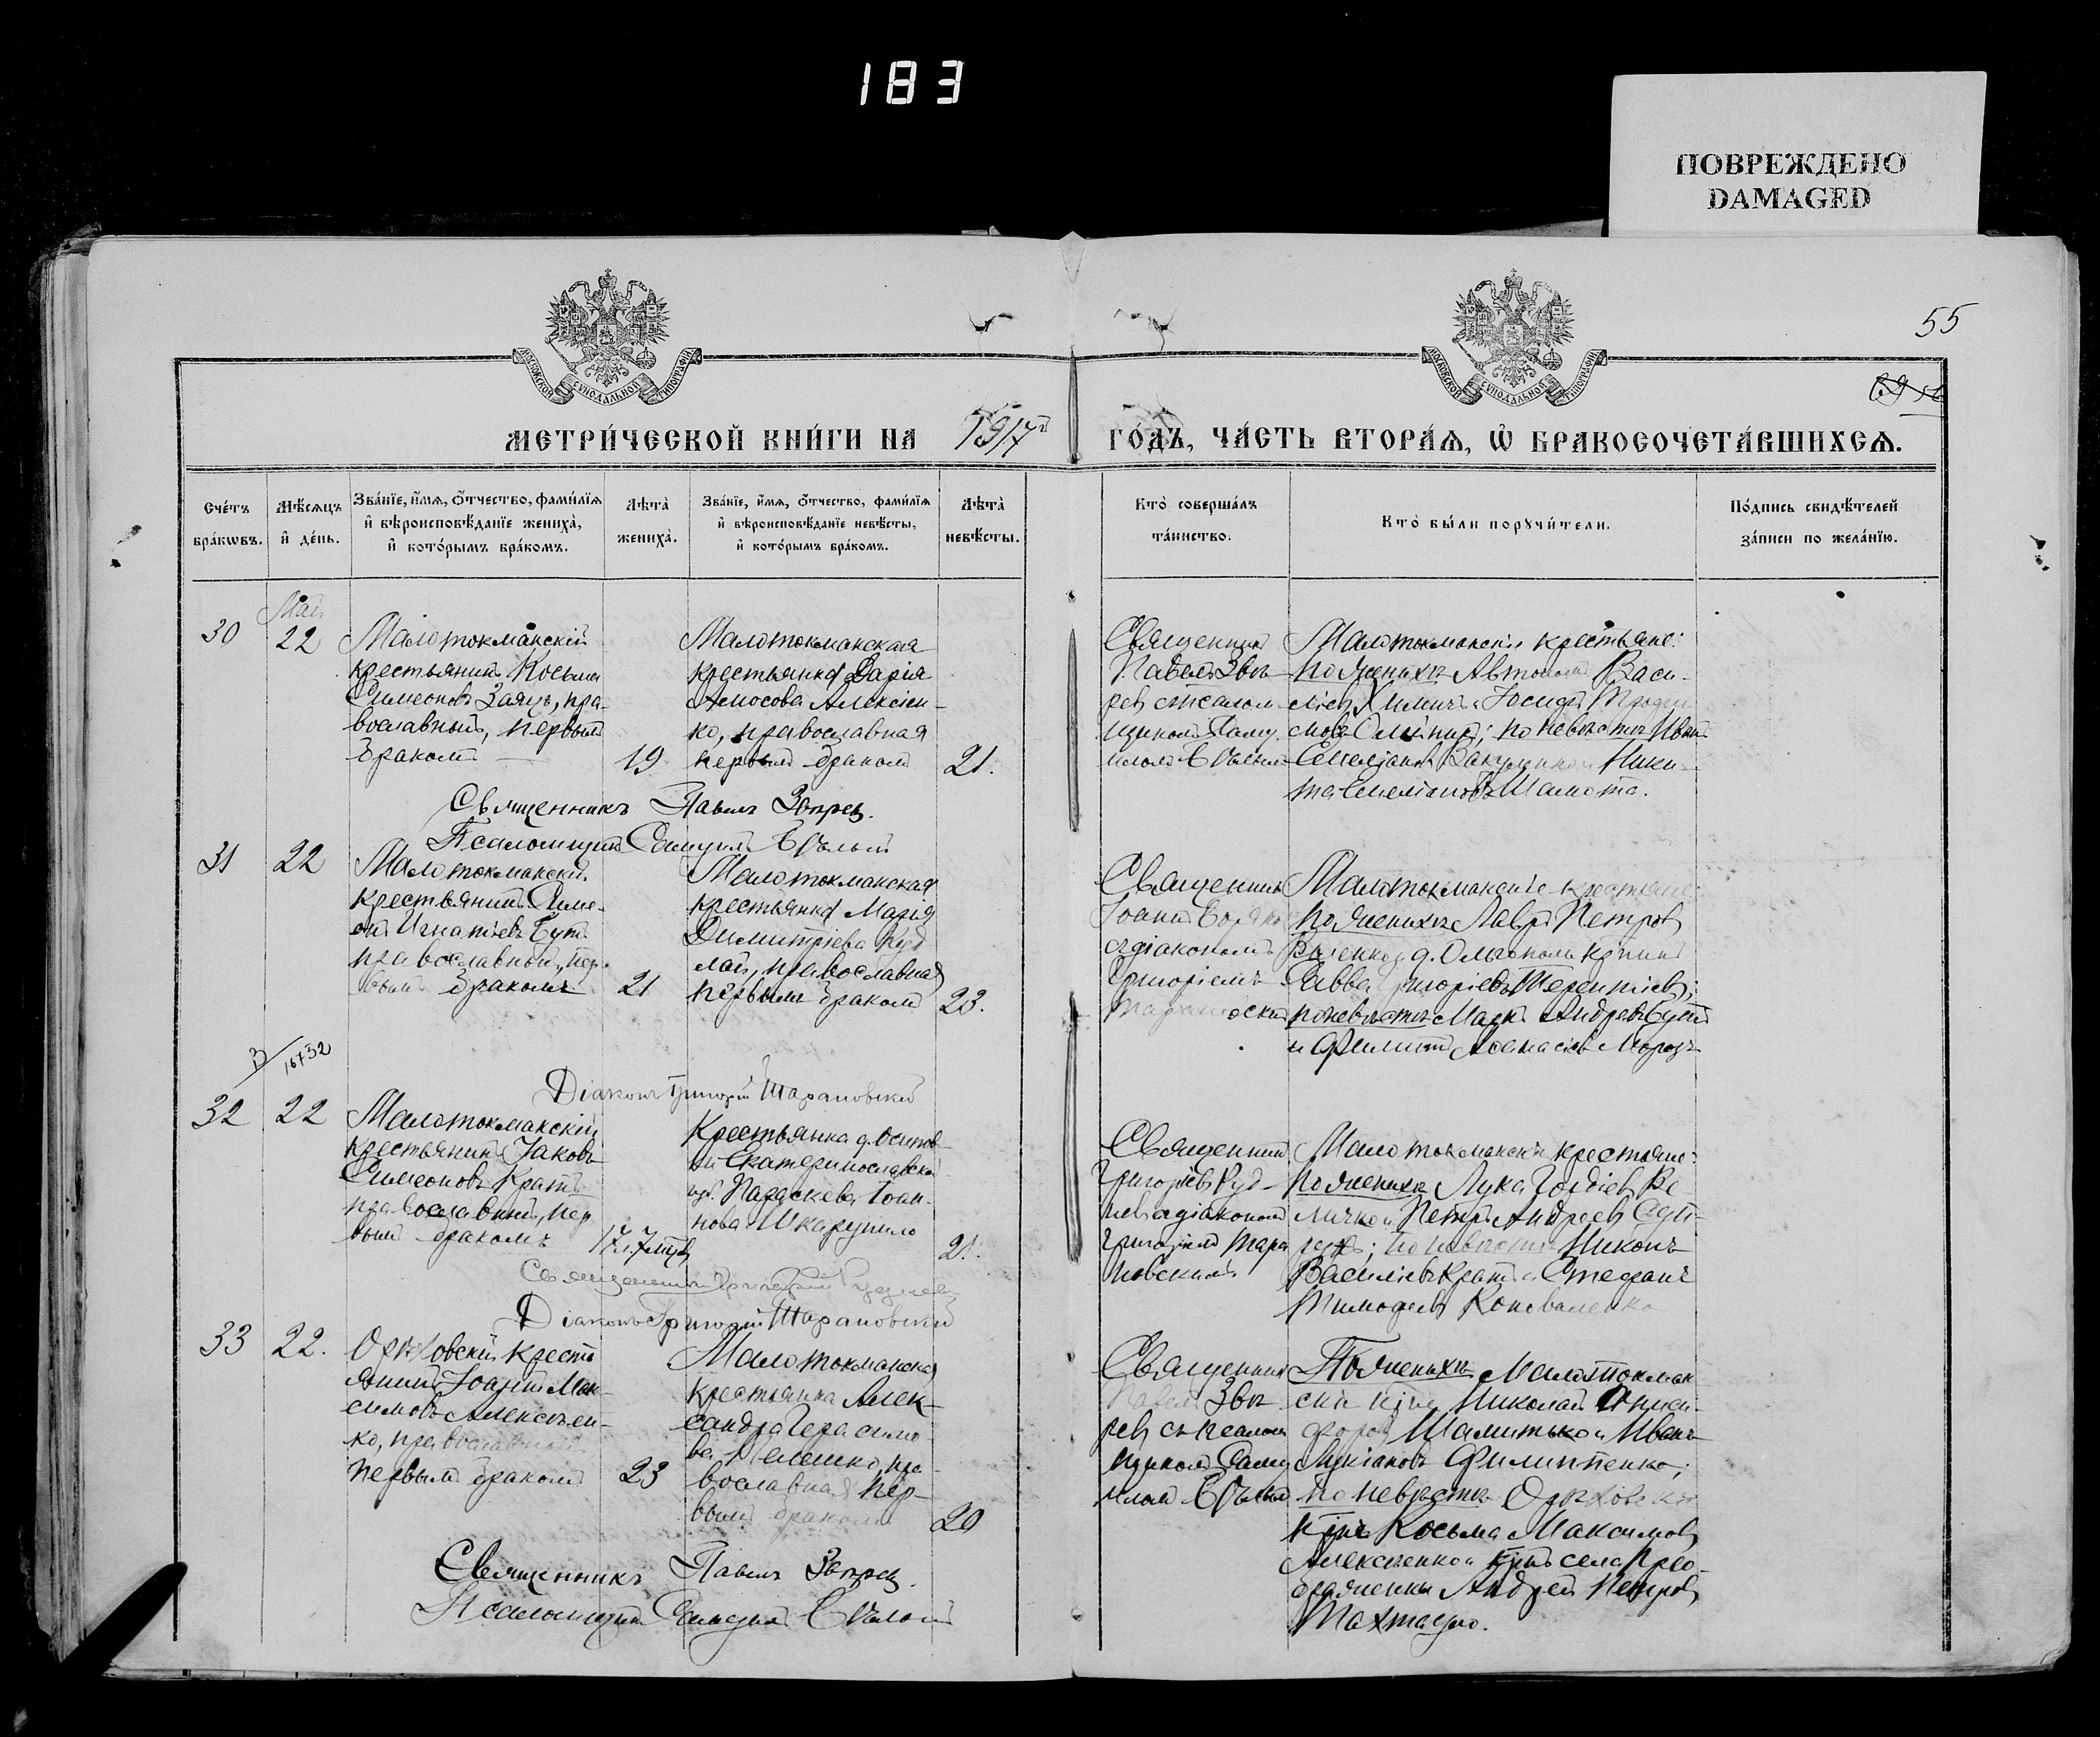 183
ПОВРЕЖДЕНО
DAMAGED
МОСКОВСКОЙ СѴНОДАЛЬНОЙ ТИПОГРАФІИ
МОСКОВСКОЙ СѴНОДАЛЬНОЙ ТИПОГРАФІИ
55
МЕТРИ́ЧЕСКОЙ КНИ́ГИ НА 1917 ГО́ДЪ, ЧА́СТЬ ВТОРА́Ѧ, Ѡ҆ БРАКОСОЧЕТА́ВШИХСѦ.
Сче́тъ
бра́кѡвъ.
Мѣ́сѧцъ
и҆ де́нь.
Зва́нїе, и҆́мѧ, ѻ҆́тчество, фами́лїѧ
и҆ вѣроисповѣ́данїе жениха̀,
и҆ кото́рымъ бра́комъ.
Лѣта̀
жениха̀.
Зва́нїе, и҆́мѧ, ѻ҆́тчество, фами́лїѧ
и҆ вѣроисповѣ́данїе невѣ́сты,
и҆ кото́рымъ бра́комъ.
Лѣта̀
невѣ́сты.
Кто̀ соверша́лъ
та́инство.
Кто̀ бы́ли порꙋчи́тели.
По́дпись свидѣ́телей
за́писи по жела́нїю.
30
Май
22
Малотокмакскій
крестьянинъ Косьма
Симеоновъ Заяцъ, пра-
вославный, первымъ
бракомъ
19
Малотокмакская
крестьянка Дарія
Амосова Алексіен-
ко, православная
первымъ бракомъ
21.
Священникъ
Павелъ Звѣ-
ревъ съ псалом-
щикомъ Саму-
иломъ
Малотокмакскіе крестьяне:
по женихѣ Автономъ Васи-
ліевъ Химичъ и Іосифъ
по невѣстѣ Иванъ
Емеліановъ и Ники-
та Емеліановъ Шамота.
Священникъ Павелъ Звѣревъ.
Псаломщикъ Самуилъ
31
22
Малотокмакскій
крестьянинъ Симе-
онъ Игнатіевъ Бутъ
православный, пер-
вымъ бракомъ
21
Малотокмакская
крестьянка Марія
Димитріева Куд
лай, православная
первымъ бракомъ
23.
Священникъ
Іоаннъ
съ діакономъ
Григоріемъ
Тарановскимъ
Малотокмакскіе крестьяне:
по женихѣ Лавръ Петровъ
Савва Григоріевъ Терентіевъ;
по невѣстѣ Маркъ Андреевъ Бутъ
и Филиппъ Аѳанасіевъ Морозъ
16732
Діаконъ Григорій Тарановскій
32
22
Малотокмакскій
крестьянинъ Іаковъ
Симеоновъ Кратъ
православный, пер
вымъ бракомъ
17 л. 7 мѣс.
Крестьянка д. Осипов-
ки Екатеринославской
губ. Параскева Іоан-
нова Шкарупило
21.
Священникъ
Григорій Руд-
невъ съ діакономъ
Григоріемъ Тара
новскимъ
Малотокмакскіе крестьяне:
по женихѣ Лука Гордіевъ Ве
личко и Петръ Андреевъ
по невѣстѣ Никонъ
Василіевъ Кратъ и Стефанъ
Тимоѳеевъ Коноваленко
Священникъ Григорій Рудневъ
Діаконъ Григорій Тарановскій
33
22.
Орѣховскій кресть
янинъ Мак-
симовъ Алексѣен-
ко, православный
первымъ бракомъ
23
Малотокмакская
крестьянка Алек-
сандра Герасимо
ва Мелешко, пра-
вославная, пер-
вымъ бракомъ
20
Священникъ
Павелъ Звѣ-
ревъ съ псалом
щикомъ Саму
иломъ
По женихѣ Малотокмак
скіе кр-не Николай Ониси-
форовъ Шамитько и Иванъ
Лукіановъ Филиппенко;
по невѣстѣ Орѣховскій
кр-нъ Косьма Максимовъ
Алексѣенко и кр-нъ села Прео-
браженки Андрей Петровъ
Тахтауло.
Священникъ Павелъ Звѣревъ.
Псаломщикъ Самуилъ